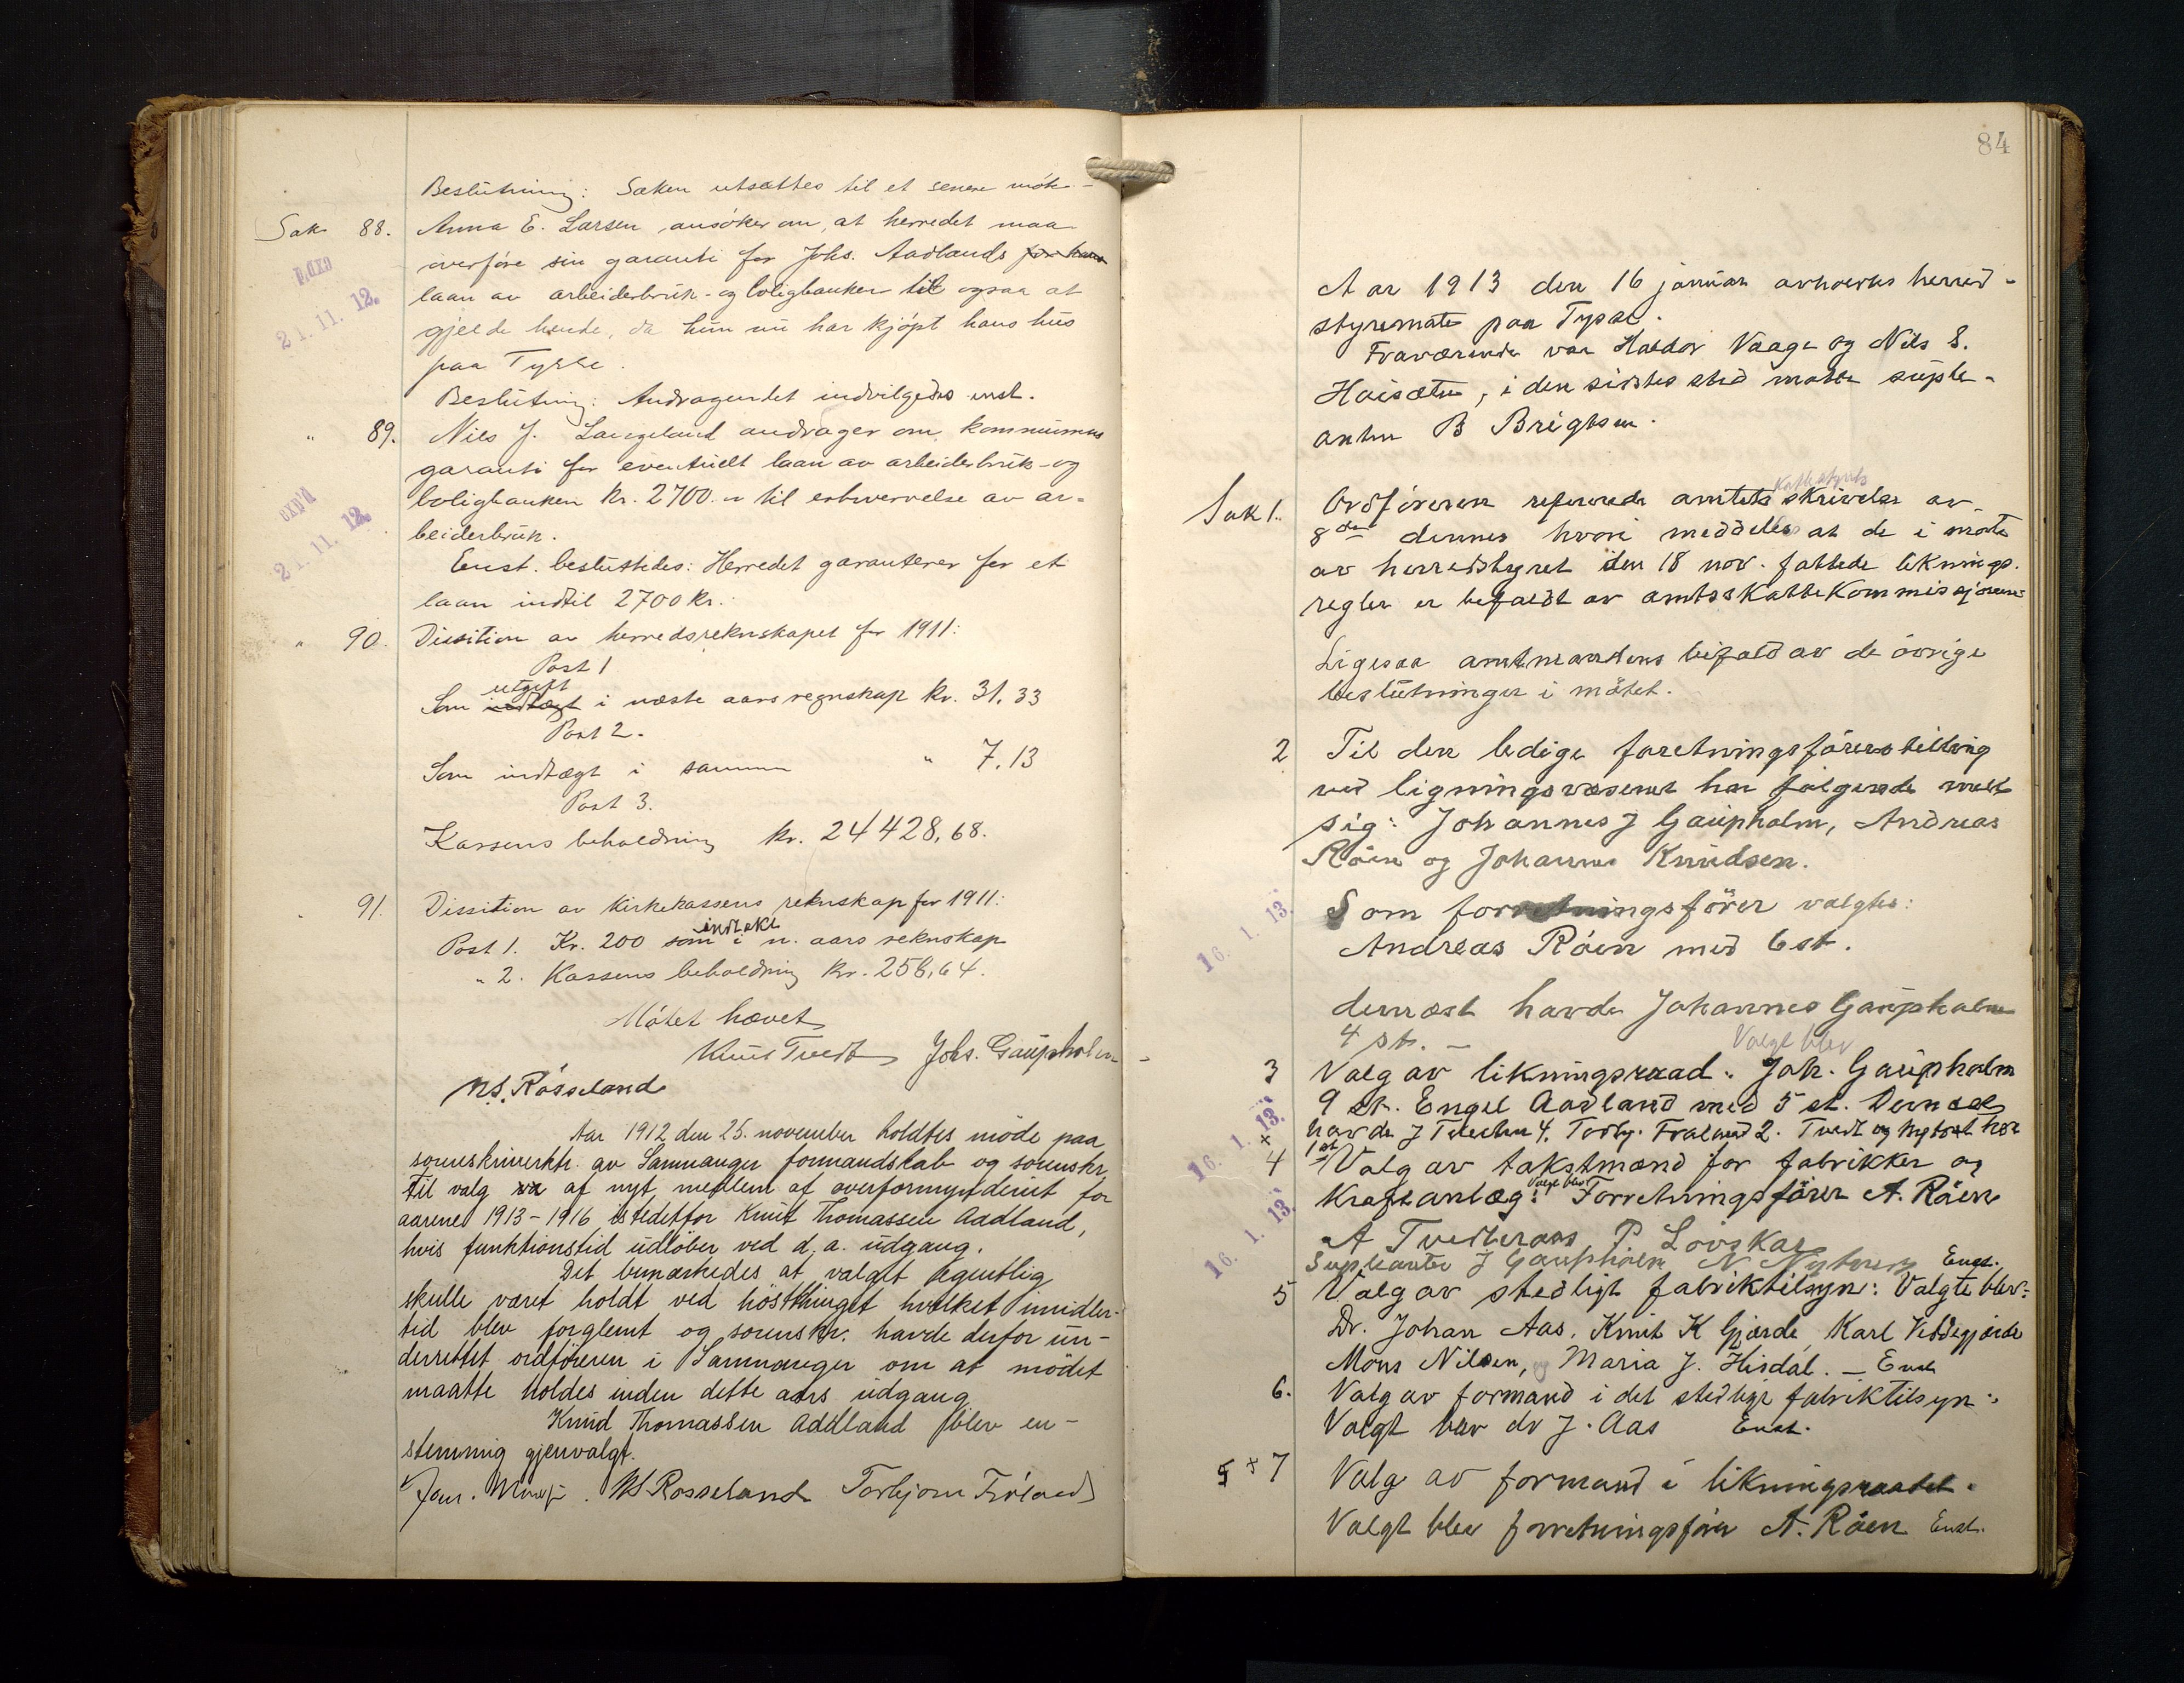 Beslutning: Saken utsættes til et senere møte. –
Sak 88. Anna E. Larsen ansøker om, at herredet maa
overføre sin garanti for Johs. Aadlands for hans
expd
21. 11. 12.
laan av arbeiderbruk- og boligbanken til ogsaa at
gjelde hende, da hun nu har kjøpt hans hus
paa Tysse.
Beslutning: Andragendet indvilgedes enst.
" 89. Nils J. Langeland andrager om kommunens
garanti for eventuelt laan av arbeiderbruk- og
boligbanken Kr. 2700.- til erhvervelse av ar-
expd
21. 11. 12.
beiderbruk.
Enst. besluttedes: Herredet garanterer for et
laan indtil 2700 kr.
" 90. Dission av herredsreknskapet for 1911:
Post 1
utgift
Som indtægt i næste aars regnskap kr. 31,33
Post 2.
Som indtægt i samme " 7,13
Post 3.
Kassens beholdning kr. 24428,68.
91. Dission av kirkekassens reknskap for 1911:
indtækt
Post 1. Kr. 200 som i n. aars reknskap
" 2. Kassens beholdning kr. 258,64.
Møtet hævet
Knut Tvedt Johs. Gaupholm
N.S. Røsseland
Aar 1912 den 25. november holdtes møde paa
sorenskriverktr. av Samnanger formandskab og sorenskr
til valg av af nyt medlem af overformynderiet for
aarene 1913–1916 istedetfor Knut Thomassen Aadland,
hvis funktionstid udløber ved d. a. udgang.
Det bemærkedes at valget egentlig
skulle været holdt ved høstthinget hvilket imidler-
tid blev forglemt og sorenskr. havde derfor un-
derrettet ordføreren i Samnanger om at mødet
maatte holdes inden dette aars udgang
Knud Thomassen Aadland blev en-
stemmig gjenvalgt.
NS Rosseland Torbjørn Frøland
84
Aar 1913 den 16 januar avholdtes herred-
styremøte paa Tysse.
Fraværende var Haldor Vaage og Nils S.
Høisæter, i den sidstes sted møtte suple-
anten B Brigtsen.
Sak 1. Ordføreren refererede amtets skrivelse av
8de dennes hvori meddeles at de i møte
av herredstyret den 18 nov. fattede liknings-
regler er bifaldt av amtsskattekommissjonen
Ligesaa amtmandens bifald av de øvrige
beslutninger i møtet.
2 Til den ledige foretningsførerstilling
ved ligningsvæsenet har følgende melt
sig: Johannes J Gaupholm, Andreas
Røen og Johannes Knudsen.
16. 1. 13.
Som forretningsfører valgtes:
Andreas Røen med 6 st.
dernæst havde Johannes Gaupholm
4 st. –
Valgt blev
3 Valg av likningsraad: Joh. Gaupholm
9 st. Engel Aadland med 5 st. Dernæst
16. 1. 13.
havde J Tveiten 4, Torbj. Frøland 2. Tvedt og
1 st
4 Valg av takstmænd for fabrikker og
Valgt blev
kraftanlæg: Forretningsfører A. Røen
16. 1. 13.
A Tvedteraas P Løvskar
Supleanter J Gaupholm N Enst.
5 Valg av stedligt fabriktilsyn: Valgte blev:
Dr. Johan Aas, Knut K Gjærde, Karl Veddegjærde
Mons Nilsen, og Maria J. Hisdal. – Enst
6. Valg av formand i det stedlige fabriktilsyn:
Valgt blev dr J. Aas Enst.
x 7 Valg av formand i likningsraadet.
Valgt blev forretningsfører A. Røen Enst.